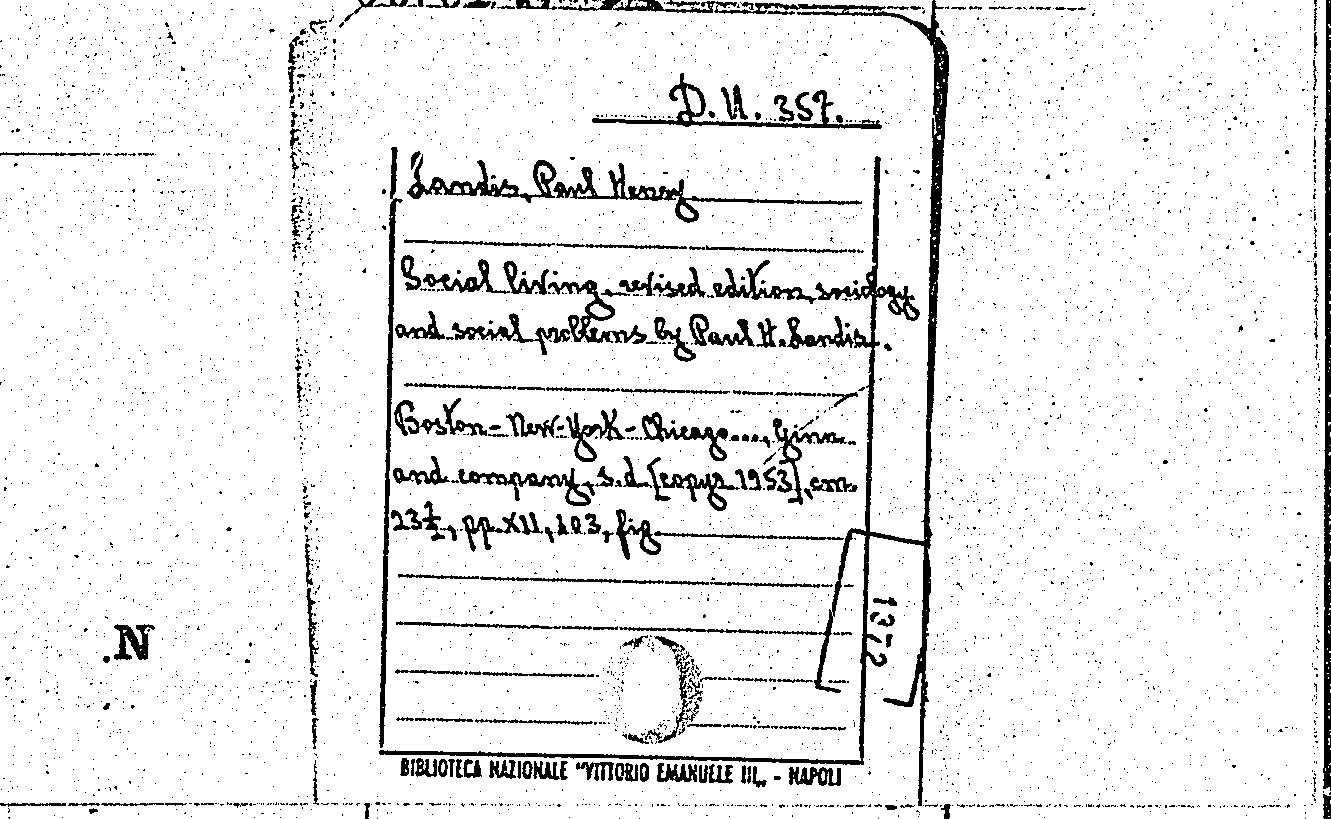 D. U. 357.
Landis, Paul Henry
Social living, revised edition, sociology
and social problems by Paul H. Landis.
Boston - New-York - Chicago...., Ginn
and company, s.d [copyr 1953], cm.
23 1/2, pp. XII, 403, fig
1372
.N
BIBLIOTECA NAZIONALE "VITTORIO EMANUELE III„ - NAPOLI